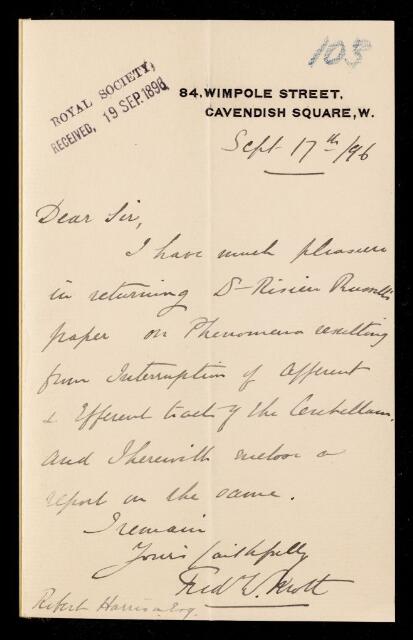 103
ROYAL SOCIETY,
RECEIVED, 19 SEP. 1896
84, WIMPOLE STREET,
CAVENDISH SQUARE, W.
Sept 17th/96
Dear Sir,
I have much pleasure
in returning Dr Risien Russell's
paper on Phenomena resulting
from Interruption of Afferent
& Efferent tracts of the Cerebellum.
and I herewith enclose a
report on the same.
I remain
Yours faithfully
Fred W. Mott
Robert Harrison Esq.